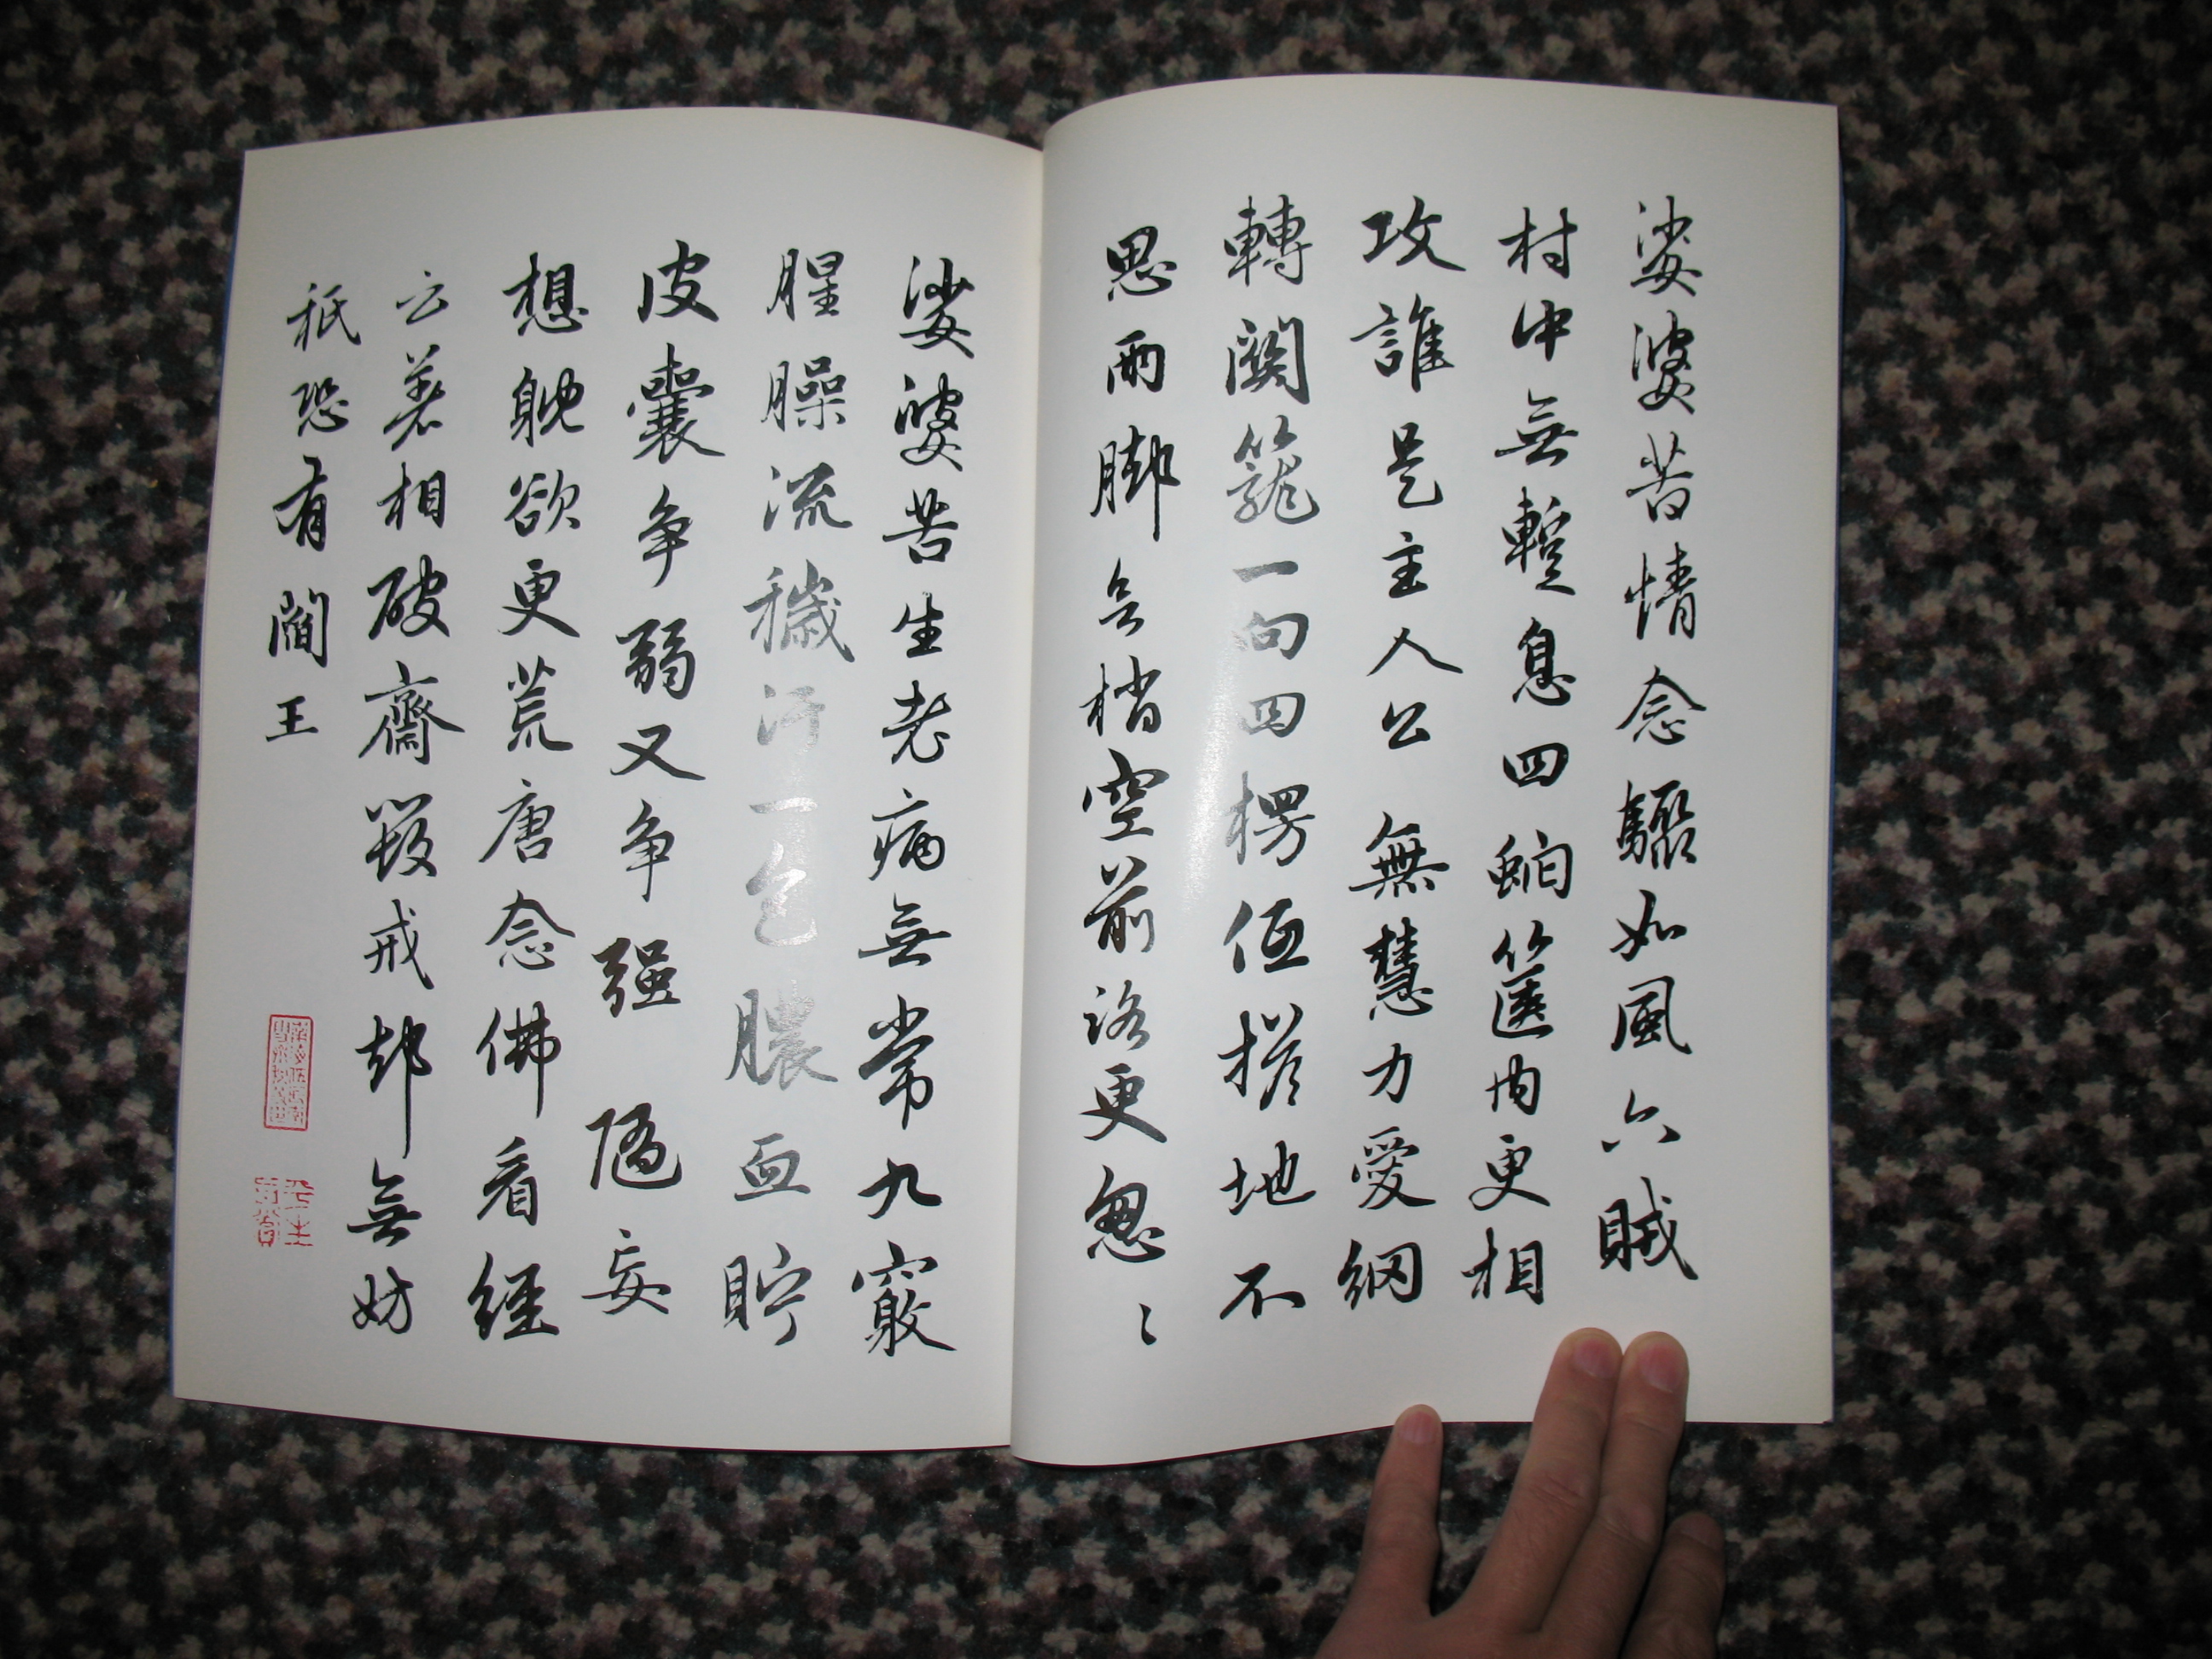 娑婆苦情念驟如風六賊
村中無蹔息四䖳篋内更相
攻誰是主人公 無慧力愛網
轉關籠一句四楞伍搭地不
思兩脚無梢空前路更怱〻
娑婆苦生老病無常九竅
腥臊流穢汙一包膿血貯
皮囊爭弱又爭强 隨妄
想躭欲更荒唐念佛看經
云著相破齋毀戒却無妨
秖恐有閻王